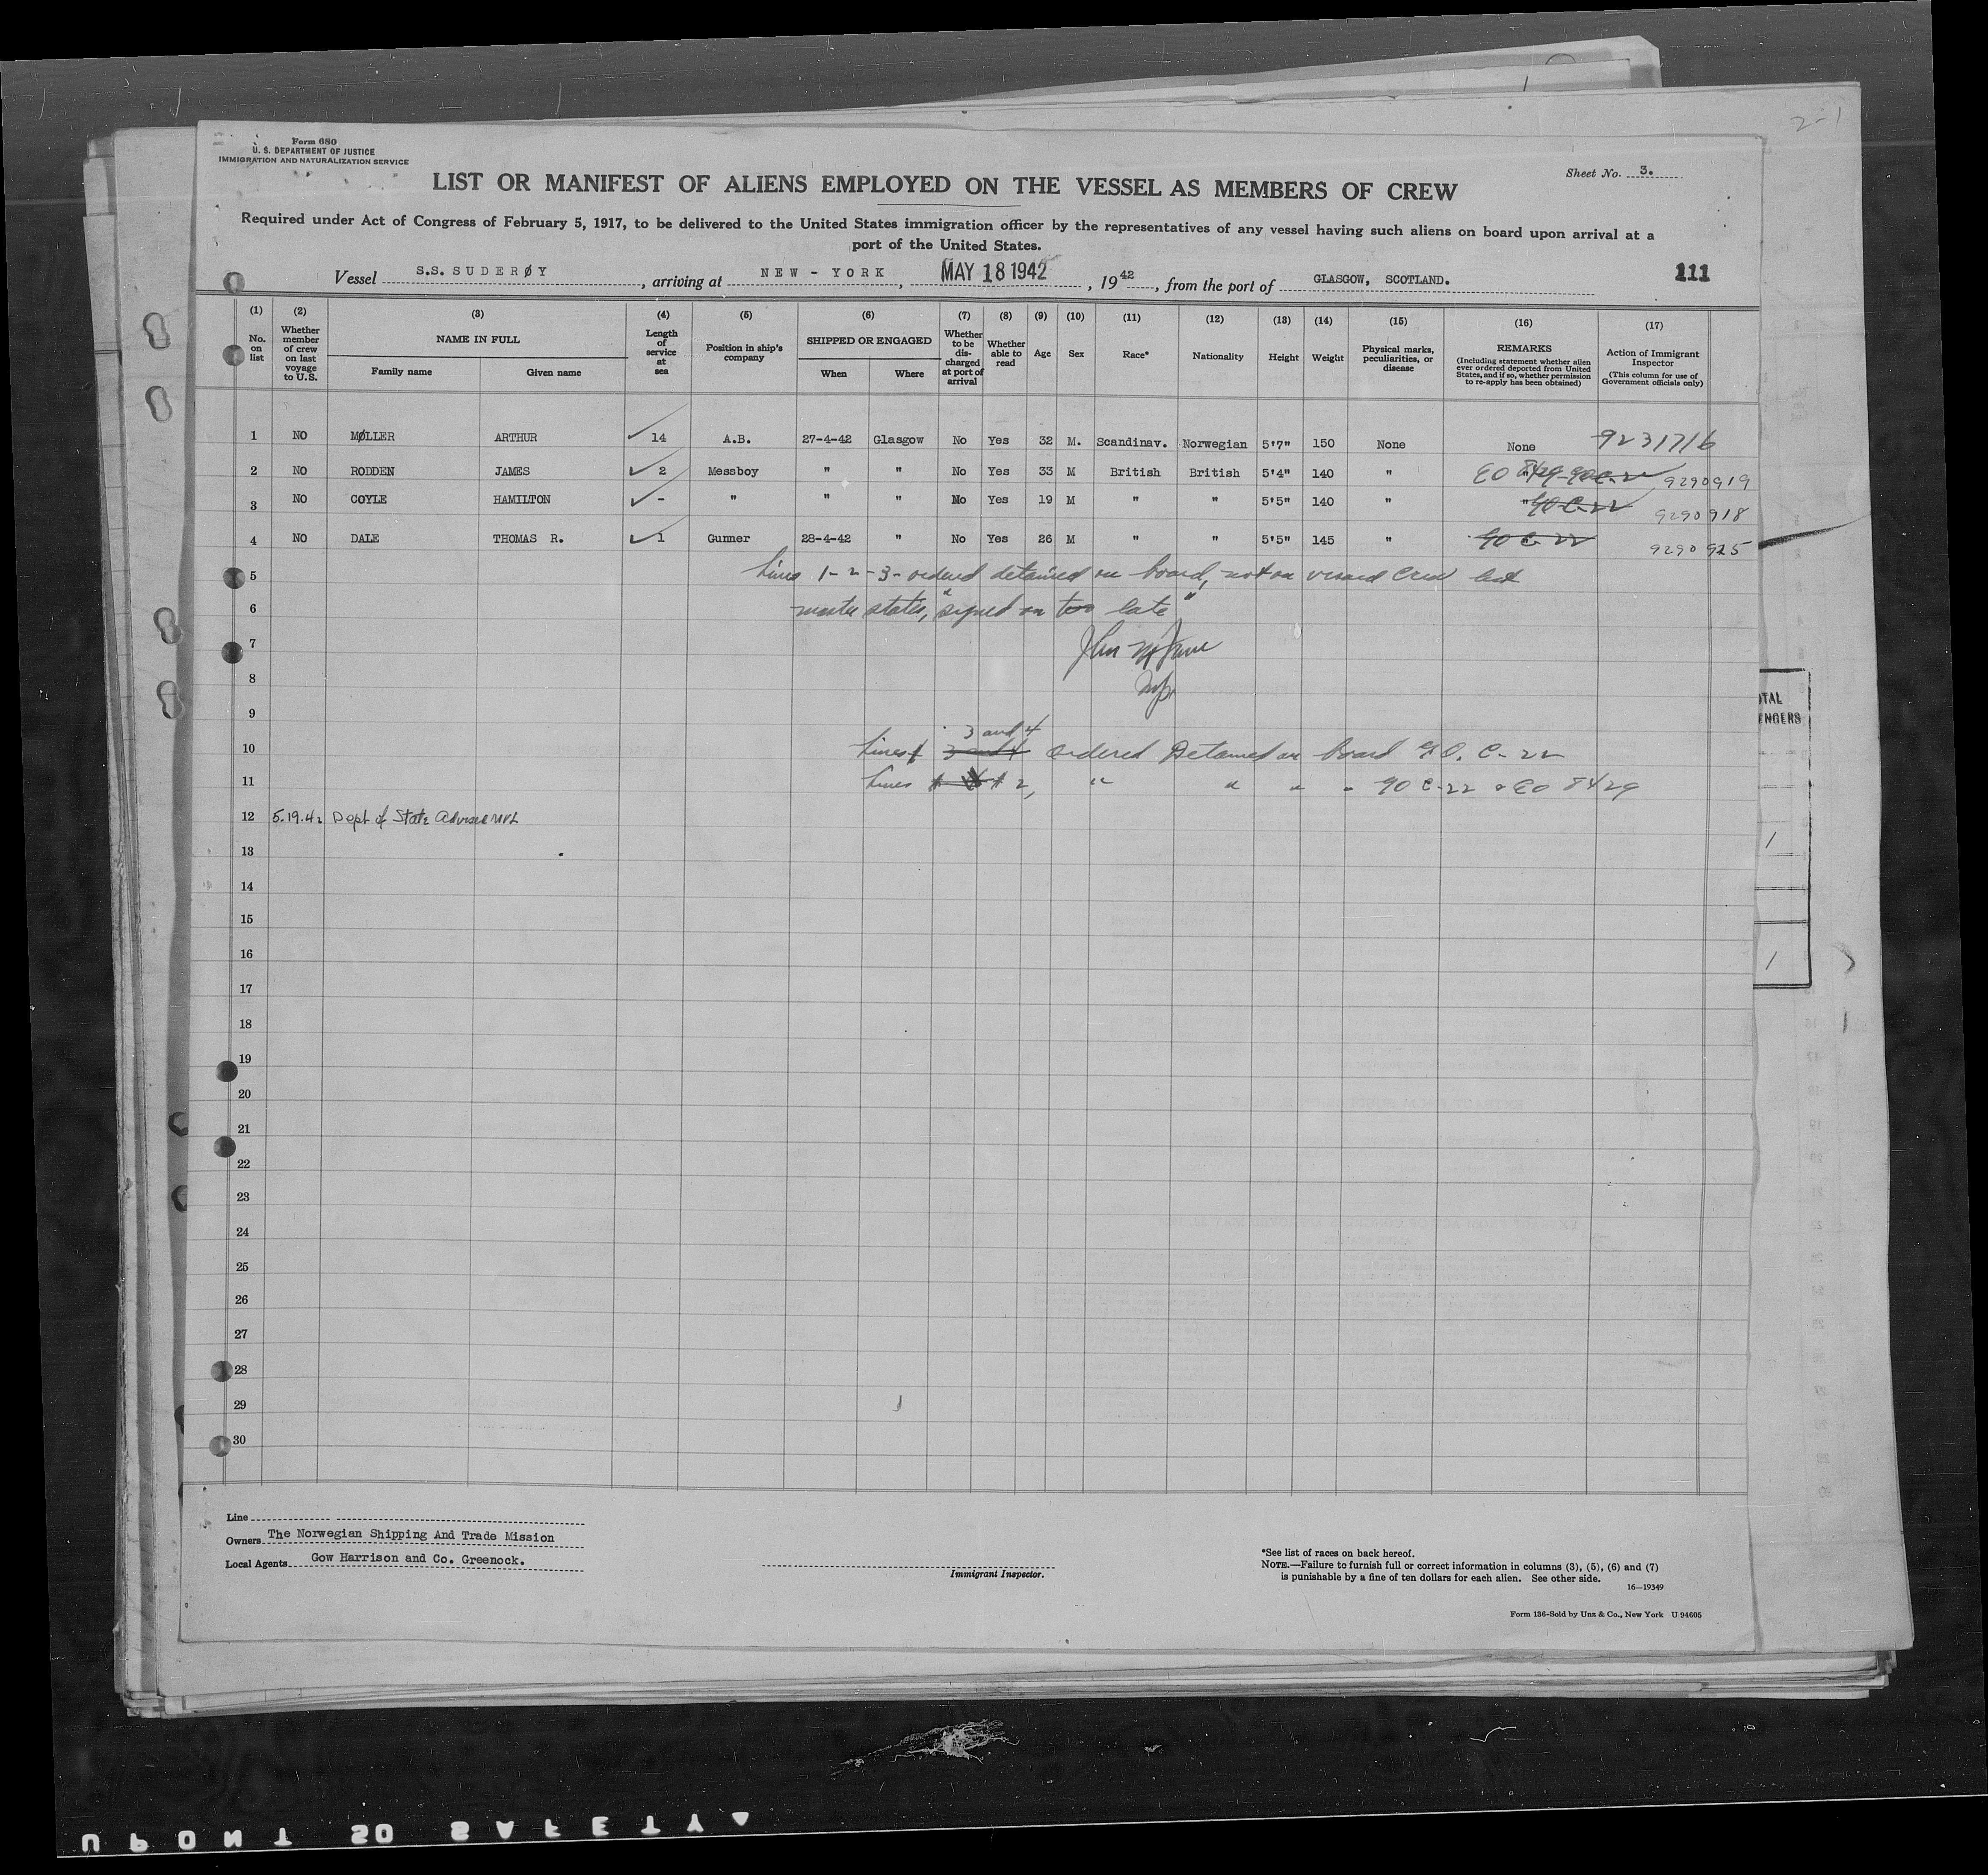 Form 680
U. S. DEPARTMENT OF JUSTICE
IMMIGRATION AND NATURALIZATION SERVICE
2-1
Sheet No. 3.
LIST OR MANIFEST OF ALIENS EMPLOYED ON THE VESSEL AS MEMBERS OF CREW
Required under Act of Congress of February 5, 1917, to be delivered to the United States immigration officer by the representatives of any vessel having such aliens on board upon arrival at a
port of the United States.
Vessel S.S. SUDERØY, arriving at NEW - YORK, MAY 18 1942, 19 42, from the port of GLASGOW, SCOTLAND.
111
(1) (2) (3) (4) (5) (6) (7) (8) (9) (10) (11) (12) (13) (14) (15) (16) (17)
No. on list
Whether member of crew on last voyage to U.S.
NAME IN FULL
Family name
Given name
Length of service at sea
Position in ship's company
SHIPPED OR ENGAGED
When
Where
Whether to be discharged at port of arrival
Whether able to read
Age
Sex
Race*
Nationality
Height
Weight
Physical marks, peculiarities, or disease
REMARKS
(Including statement whether alien ever ordered deported from United States, and if so, whether permission to re-apply has been obtained)
Action of Immigrant Inspector
(This column for use of Government officials only)
1 NO MØLLER ARTHUR 14 A.B. 27-4-42 Glasgow No Yes 32 M. Scandinav. Norwegian 5'7" 150 None None 9231716
2 NO RODDEN JAMES 2 Messboy " " No Yes 33 M British British 5'4" 140 " EO 8429 9290919
3 NO COYLE HAMILTON - " " " No Yes 19 M " " 5'5" 140 " " 90 C-22 9290918
4 NO DALE THOMAS R. 1 Gunner 28-4-42 " No Yes 26 M " " 5'5" 145 " 90 C-22 9290925
5 Lines 1-2-3- ordered detained on board, not on visaed crew list
6 master states, "signed on too late"
7 John
8
9 3 and 4
10 Lines 3 and 4 ordered Detained on board 90. C-22
11 Lines 2, " " " " 90 C-22 & EO 8429
12 5.19.42 Dept of State Advised
13
14
15
16
17
18
19
20
21
22
23
24
25
26
27
28
29
30
OTAL
ENGERS
1
1
Line
Owners The Norwegian Shipping And Trade Mission
Local Agents Gow Harrison and Co. Greenock.
Immigrant Inspector.
*See list of races on back hereof.
NOTE.—Failure to furnish full or correct information in columns (3), (5), (6) and (7)
is punishable by a fine of ten dollars for each alien. See other side.
16—19349
Form 136-Sold by Unz & Co., New York U 94605
UPONT SO SAFETY